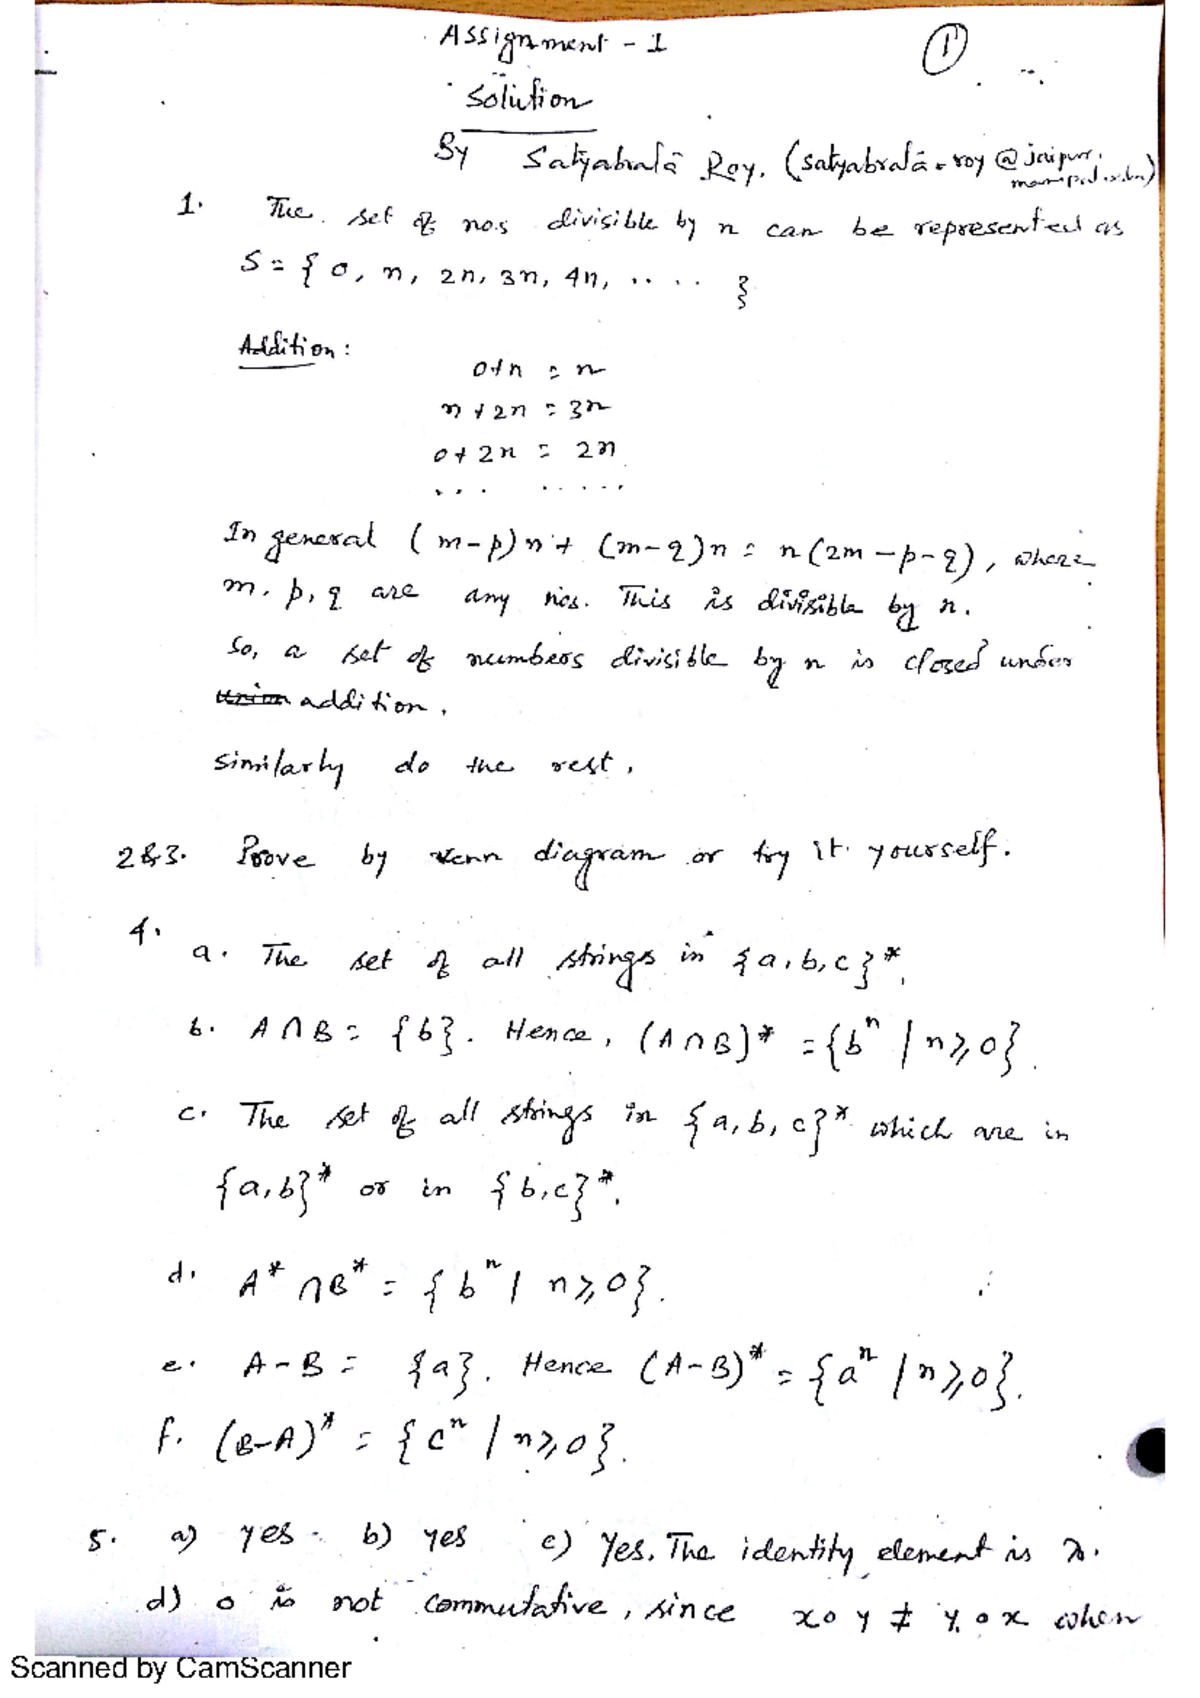 Assignment - 1
1
Solution
By Satyabrata Roy. (satyabrata.roy @ jaipur.
manipal.edu)
1. The set of nos divisible by n can be represented as
S = { 0, n, 2n, 3n, 4n, ..... }
Addition:
0+n = n
n+2n = 3n
0+2n = 2n
... .....
In general (m-p)n + (m-q)n = n(2m-p-q), where
m, p, q are any nos. This is divisible by n.
So, a set of numbers divisible by n is closed under
union addition.
Similarly do the rest.
2&3. Prove by Venn diagram or try it yourself.
4.
a. The set of all strings in {a,b,c}*.
b. A∩B = {b}. Hence, (A∩B)* = {bⁿ | n⩾0}.
c. The set of all strings in {a,b,c}* which are in
{a,b}* or in {b,c}*.
d. A*∩B* = {bⁿ | n⩾0}.
e. A-B = {a}. Hence (A-B)* = {aⁿ | n⩾0}.
f. (B-A)* = {cⁿ | n⩾0}.
5. a) yes. b) yes c) Yes. The identity element is λ.
d) o is not commutative, since x o y ≠ y o x when
Scanned by CamScanner